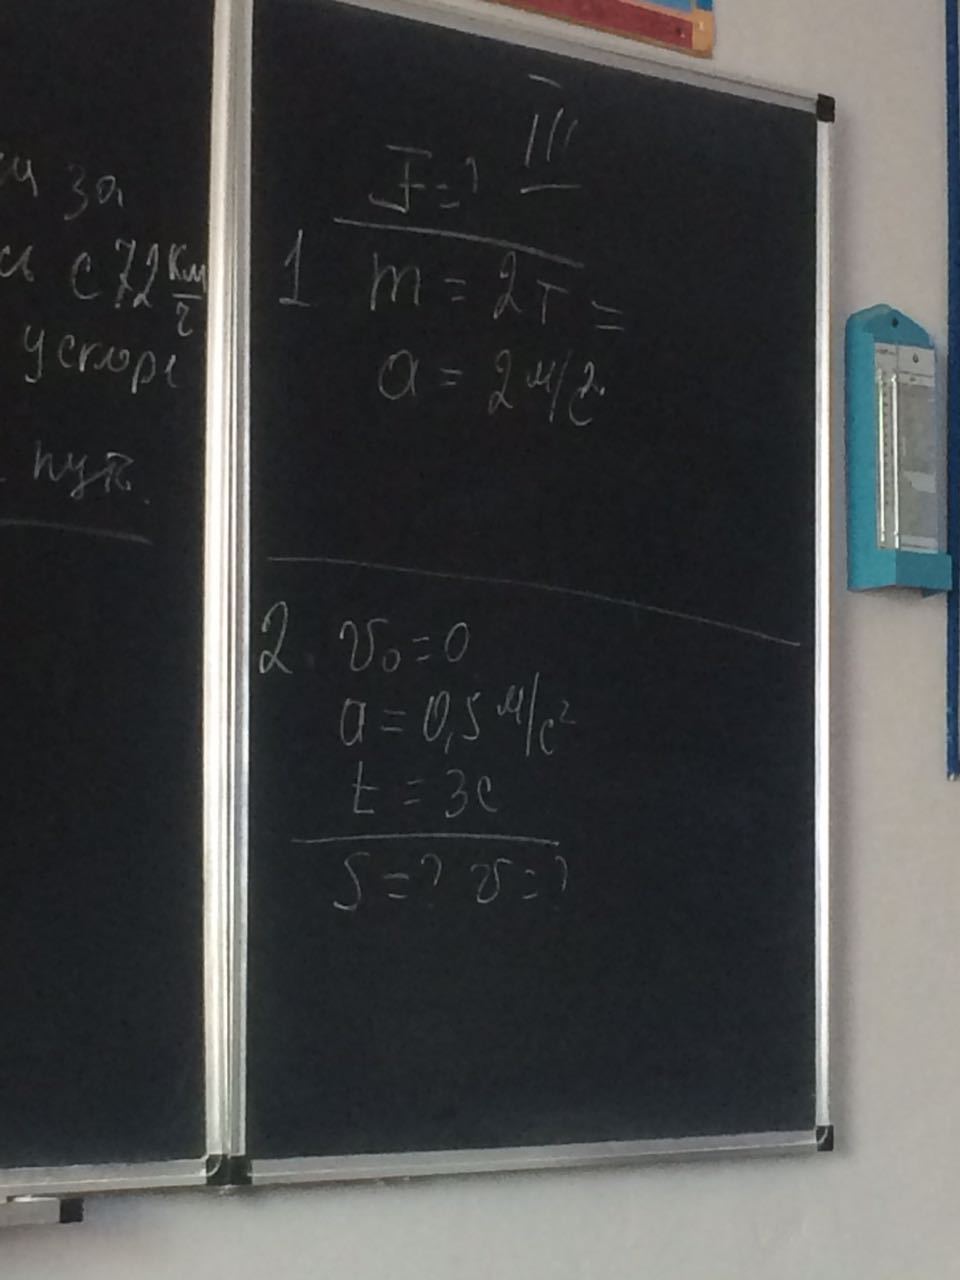 за
с 72 км/ч
ускоре
пут.
III
F = ?
1 m = 2т =
a = 2 м/с²
2. v₀ = 0
a = 0,5 м/с²
t = 3с
S = ? v = ?